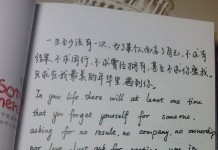 一生至少该有一次,为了某个人而忘了自己,不求有
结果,不求同行,不求曾经拥有,甚至不求你爱我
只求在我最美的年华里,遇到你。
In you life, there will at least one time
that you forget yourself for someone,
asking for no result, no company, no ownership
nor love. Just ask for meeting you in
Som